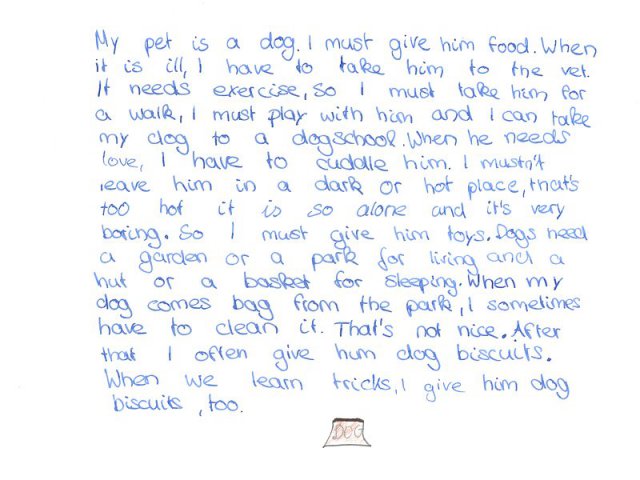 My pet is a dog. I must give him food. When
it is ill, I have to take him to the vet.
It needs exercise, so I must take him for
a walk, I must play with him and I can take
my dog to a dogschool. When he needs
love, I have to cuddle him. I mustn't
leave him in a dark or hot place, that's
too hot it is so alone and it's very
boring. So I must give him toys. Dogs need
a garden or a park for living and a
hut or a basket for sleeping. When my
dog comes bag from the park, I sometimes
have to clean it. That's not nice. After
that I often give him dog biscuits.
When we learn tricks, I give him dog
biscuits, too.
DOG